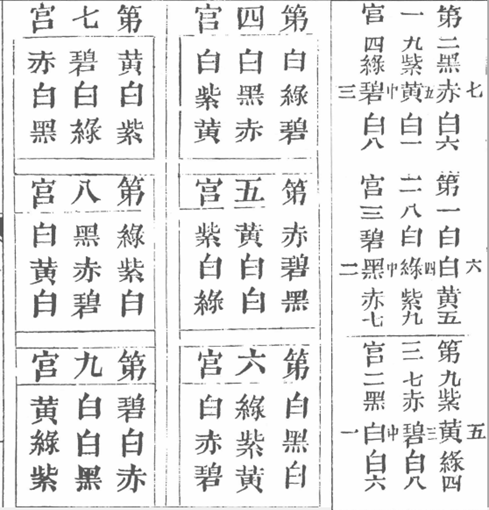 第一宮
二黑 九紫 四綠
七赤五黃中碧三
白六 白一 白八
第二宮
一白 八白 三碧
六白四綠中黑二
黃五 紫九 赤七
第三宮
九紫 七赤 二黑
五黃三碧中白一
綠四 白八 白六
第四宮
白白白
綠黑紫
碧赤黃
第五宮
赤黃紫
碧白白
黑白綠
第六宮
白綠白
黑紫赤
白黃碧
第七宮
黃碧赤
白白白
紫綠黑
第八宮
綠黑白
紫赤黃
白碧白
第九宮
碧白黃
白白綠
赤黑紫